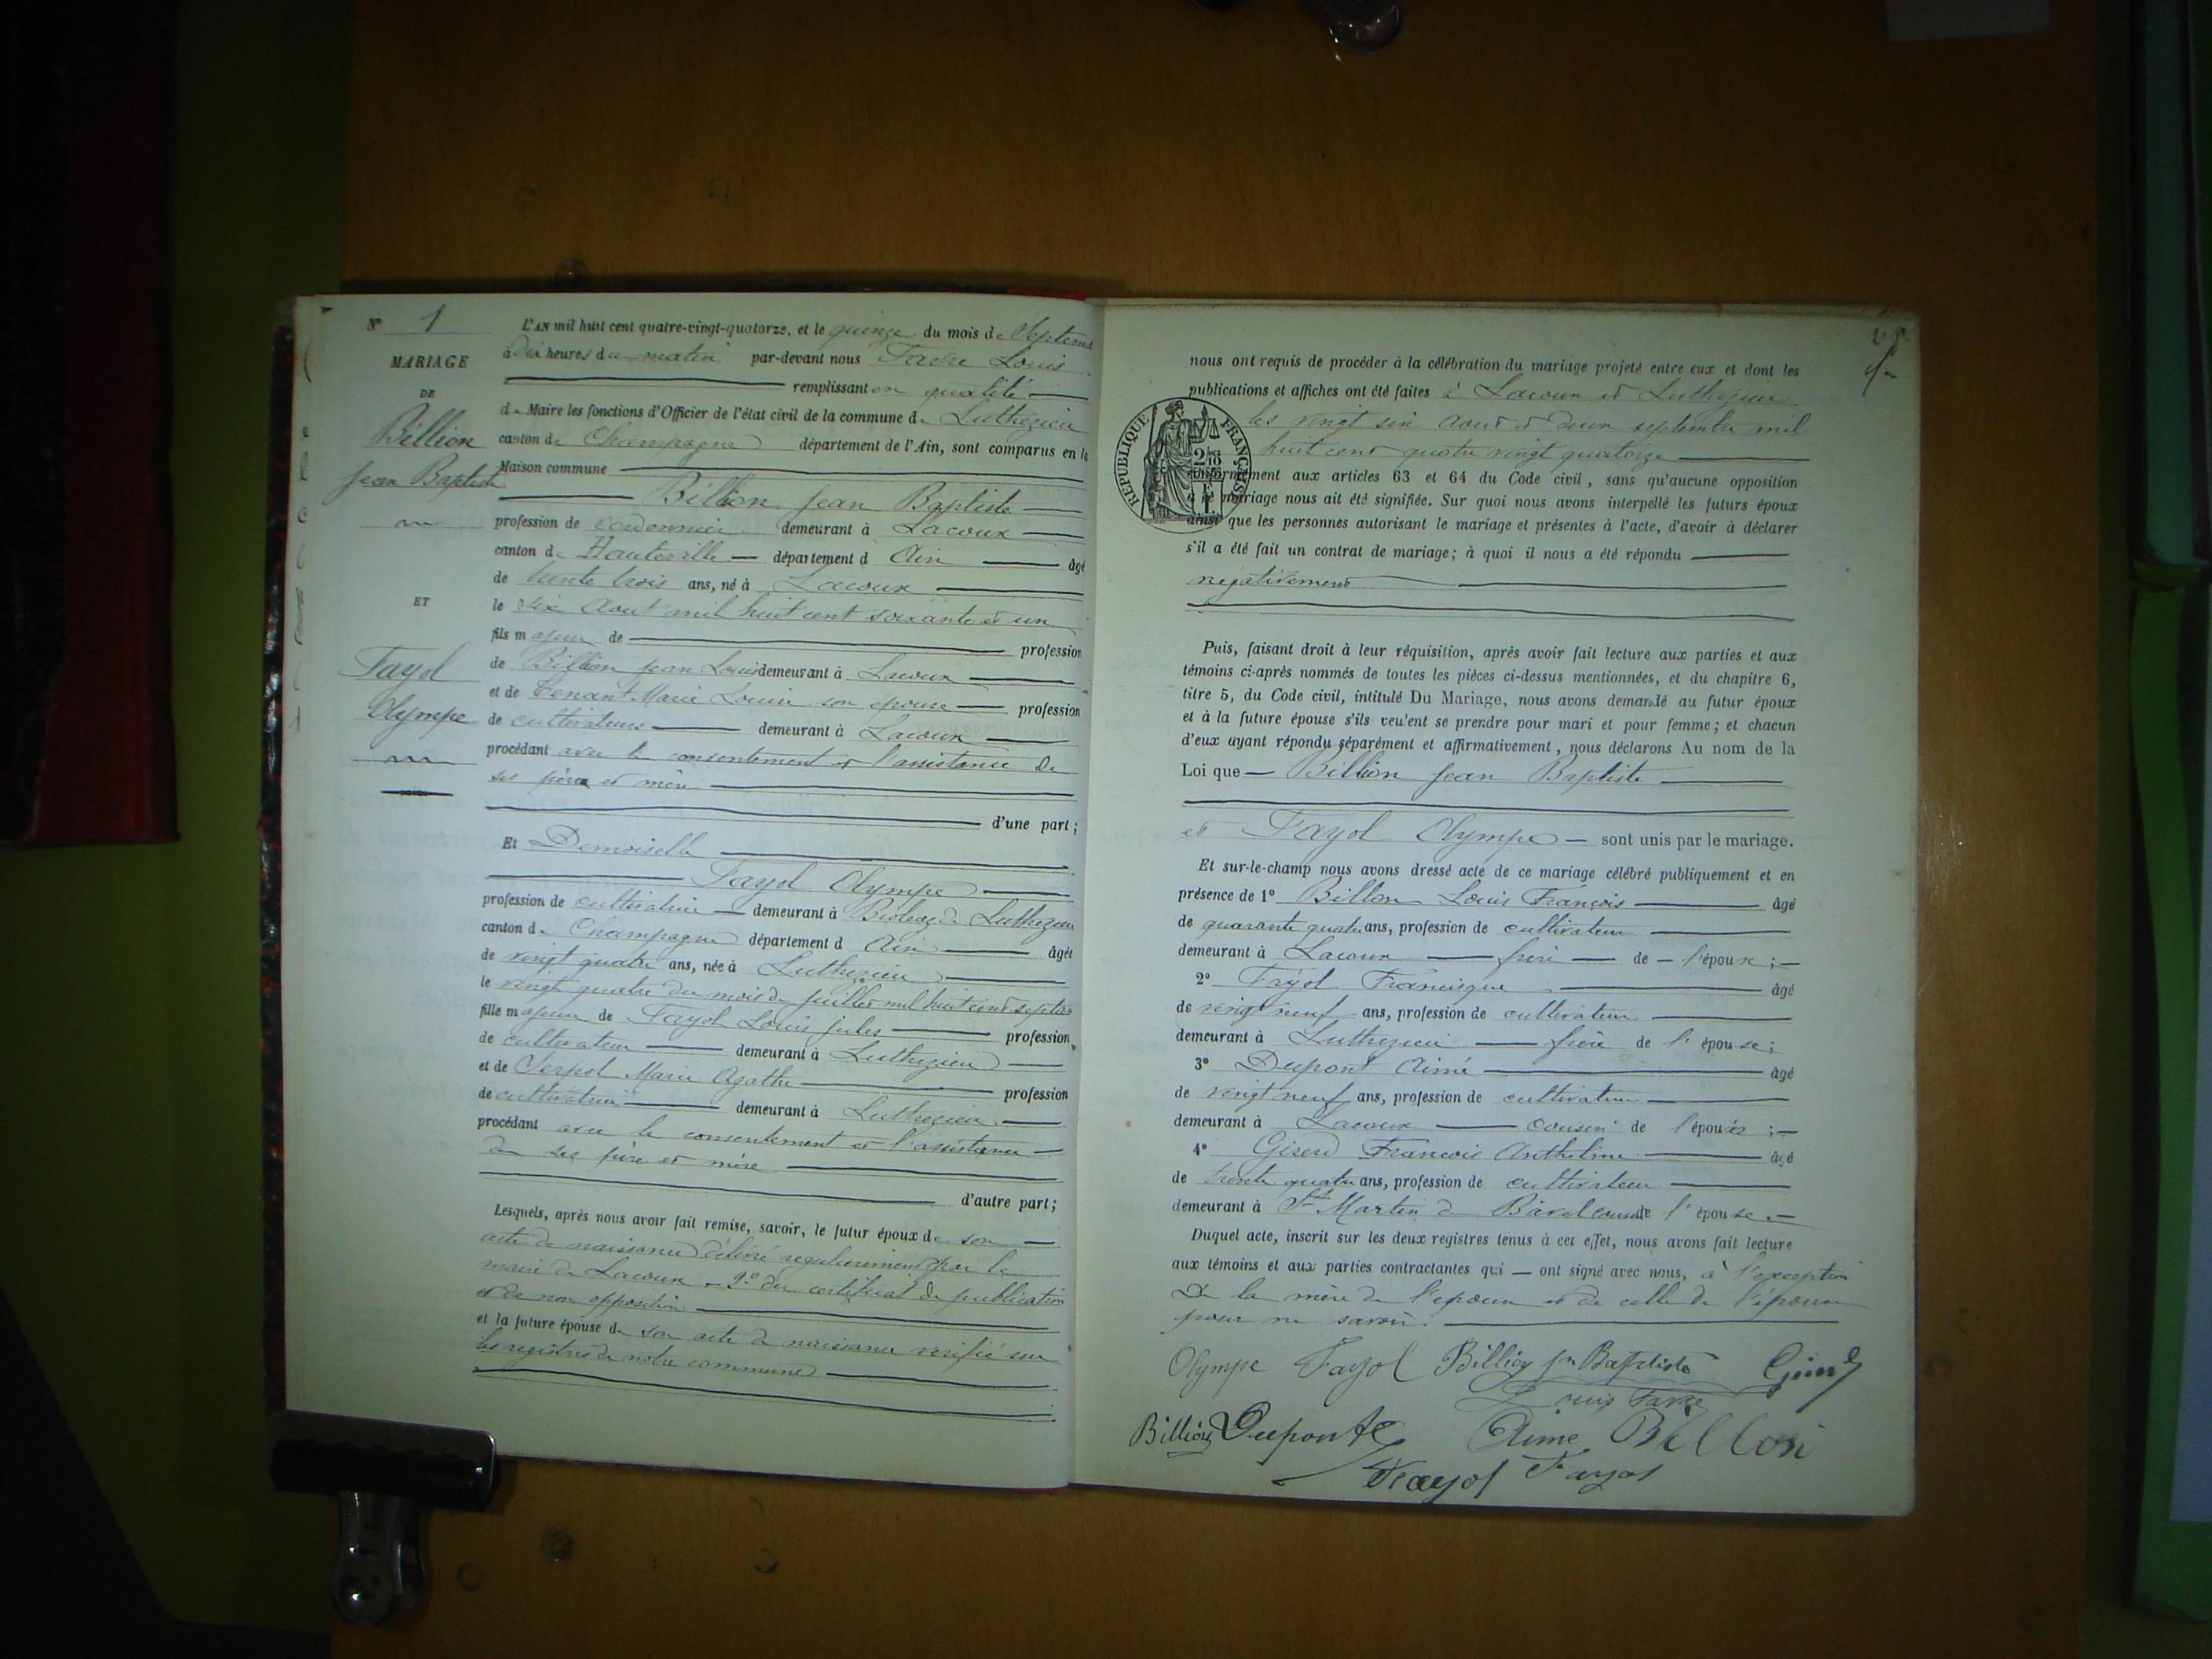 Nº 1
MARIAGE
DE
Billion
Jean Baptiste
ET
Fayol
Olympe
L'AN mil huit cent quatre-vingt-quatorze, et le quinze du mois de Septemb
à dix heures du matin par-devant nous Favre Louis
remplissant en qualité
de Maire les fonctions d'Officier de l'état civil de la commune de Luthezieu
canton de Champagne département de l'Ain, sont comparus en la
Maison commune
Billion Jean Baptiste
profession de cordonnier demeurant à Lacoux
canton de Hauteville département d Ain âgé
de trente trois ans, né à Lacoux
le six Aout mil huit cent soixante et un
fils majeur de profession
de Billion Jean Louis demeurant à Lacoux
et de Tenant Marie Louise son épouse profession
de cultivateurs demeurant à Lacoux
procédant avec le consentement et l'assistance de
ses père et mère
d'une part;
Et Demoiselle
Fayol Olympe
profession de cultivatrice demeurant à Luthezieu
canton de Champagne département d Ain âgée
de vingt quatre ans, née à Luthezieu
le vingt quatre du mois de juillet mil huit cent septante
fille majeure de Fayol Louis Jules profession
de cultivateur demeurant à Luthezieu
et de Serpol Marie Agathe profession
de cultivatrice demeurant à Luthezieu
procédant avec le consentement et l'assistance
de ses père et mère
d'autre part;
Lesquels, après nous avoir fait remise, savoir, le futur époux de son
acte de naissance délivré regulierement par le
maire de Lacoux 2º du certificat de publication
et de non opposition
et la future épouse de son acte de naissance verifié sur
les registres de notre commune
nous ont requis de procéder à la célébration du mariage projeté entre eux et dont les
publications et affiches ont été faites à Lacoux et Luthezieu
les vingt six aout et deux septembre mil
huit cent quatre vingt quatorze
RÉPUBLIQUE FRANÇAISE
conformément aux articles 63 et 64 du Code civil, sans qu'aucune opposition
à ce mariage nous ait été signifiée. Sur quoi nous avons interpellé les futurs époux
ainsi que les personnes autorisant le mariage et présentes à l'acte, d'avoir à déclarer
s'il a été fait un contrat de mariage; à quoi il nous a été répondu
négativement
Puis, faisant droit à leur réquisition, après avoir fait lecture aux parties et aux
témoins ci-après nommés de toutes les pièces ci-dessus mentionnées, et du chapitre 6,
titre 5, du Code civil, intitulé Du Mariage, nous avons demandé au futur époux
et à la future épouse s'ils veulent se prendre pour mari et pour femme; et chacun
d'eux ayant répondu séparément et affirmativement, nous déclarons Au nom de la
Loi que Billion Jean Baptiste
et Fayol Olympe sont unis par le mariage.
Et sur-le-champ nous avons dressé acte de ce mariage célébré publiquement et en
présence de 1º Billon Louis François âgé
de quarante quatre ans, profession de cultivateur
demeurant à Lacoux frère de l'époux;
2º Fayol Francisque âgé
de vingt neuf ans, profession de cultivateur
demeurant à Luthezieu frère de l'épouse;
3º Dupont Aimé âgé
de vingt neuf ans, profession de cultivateur
demeurant à Lacoux cousin de l'époux;
4º Girerd Francois Anthelme âgé
de trente quatre ans, profession de cultivateur
demeurant à St Martin de Bavel cousin de l'épouse
Duquel acte, inscrit sur les deux registres tenus à cet effet, nous avons fait lecture
aux témoins et aux parties contractantes qui ont signé avec nous, à l'exception
De la mère de l'epoux et de celle de l'épouse
pour ne savoir.
Olympe Fayol Billion Jn Baptiste
Louis Favre
Billion Dupont Aime Billon
Fayol Fayol